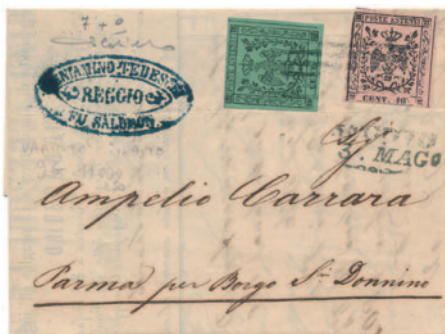 7 + 0
BENIAMINO TEDESCHI
REGGIO
FU SALOMON
POSTE ESTENSI
CENT. 10
REGGIO
3. MAGO
Ampelio Carrara
Parma per Borgo Sn. Donnino